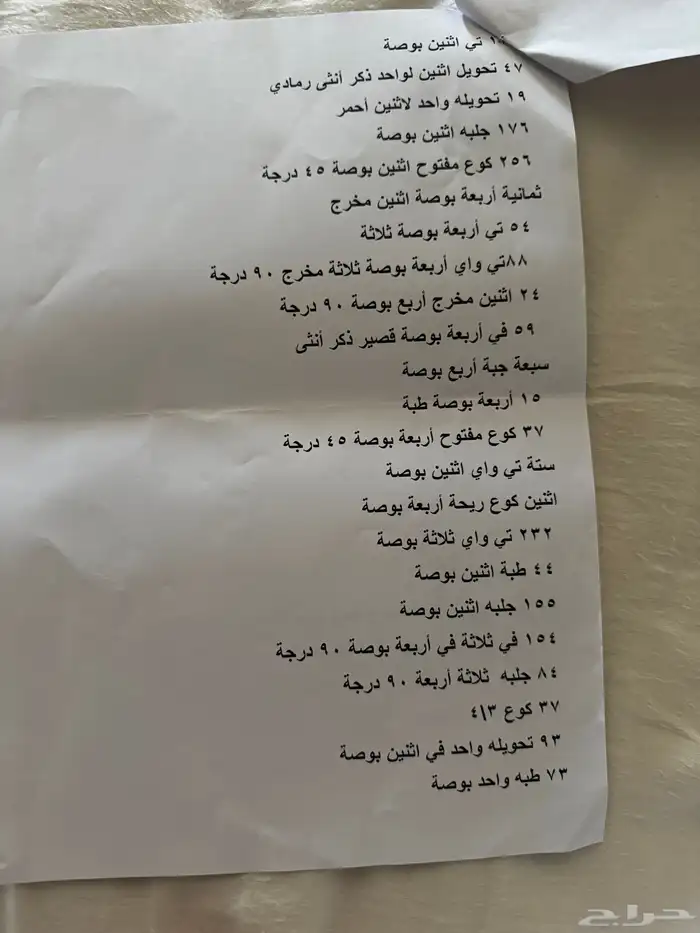 تي اثنين بوصة
٤٧ تحويل اثنين لواحد ذكر أنثى رمادي
١٩ تحويله واحد لاثنين أحمر
١٧٦ جلبه اثنين بوصة
٢٥٦ كوع مفتوح اثنين بوصة ٤٥ درجة
ثمانية أربعة بوصة اثنين مخرج
٥٤ تي أربعة بوصة ثلاثة
٨٨تي واي أربعة بوصة ثلاثة مخرج ٩٠ درجة
٢٤ اثنين مخرج أربع بوصة ٩٠ درجة
٥٩ في أربعة بوصة قصير ذكر أنثى
سبعة جبة أربع بوصة
١٥ أربعة بوصة طبة
٣٧ كوع مفتوح أربعة بوصة ٤٥ درجة
ستة تي واي اثنين بوصة
اثنين كوع ريحة أربعة بوصة
٢٣٢ تي واي ثلاثة بوصة
٤٤ طبة اثنين بوصة
١٥٥ جلبه اثنين بوصة
١٥٤ في ثلاثة في أربعة بوصة ٩٠ درجة
٨٤ جلبه ثلاثة أربعة ٩٠ درجة
٣٧ كوع ٣\٤
٩٣ تحويله واحد في اثنين بوصة
٧٣ طبه واحد بوصة
حراج